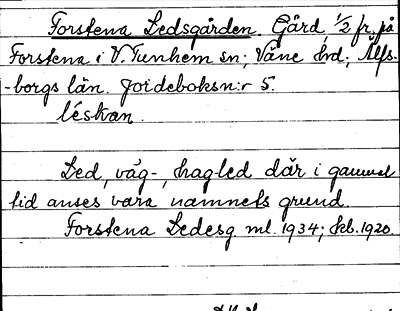 Forstena Ledsgården. Gård, 1/2 fr. på
Forstena i V. Tunhem sn; Väne hd; Älfs-
-borgs län. Jordeboksn:r 5.
léskan.
Led, väg-, hagled där i gammal
tid anses vara namnets grund.
Forstena Ledesg ml. 1934; kb. 1920.